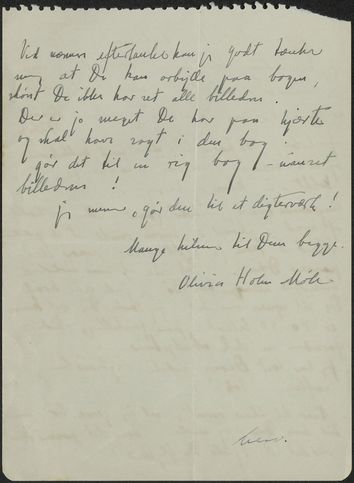 Ved nærmere eftertanke kan jeg godt tænke
mig at De kan arbejde paa bogen,
skönt De ikke har set alle billedera.
Der er jo meget De har paa hjerte
og skal have sagt i den bog.
gör det til en rig bog – uanset
billederne!
jeg mener, gör den til et digterværk!
Mange hilsner til Dem begge.
Olivia Holm Møller